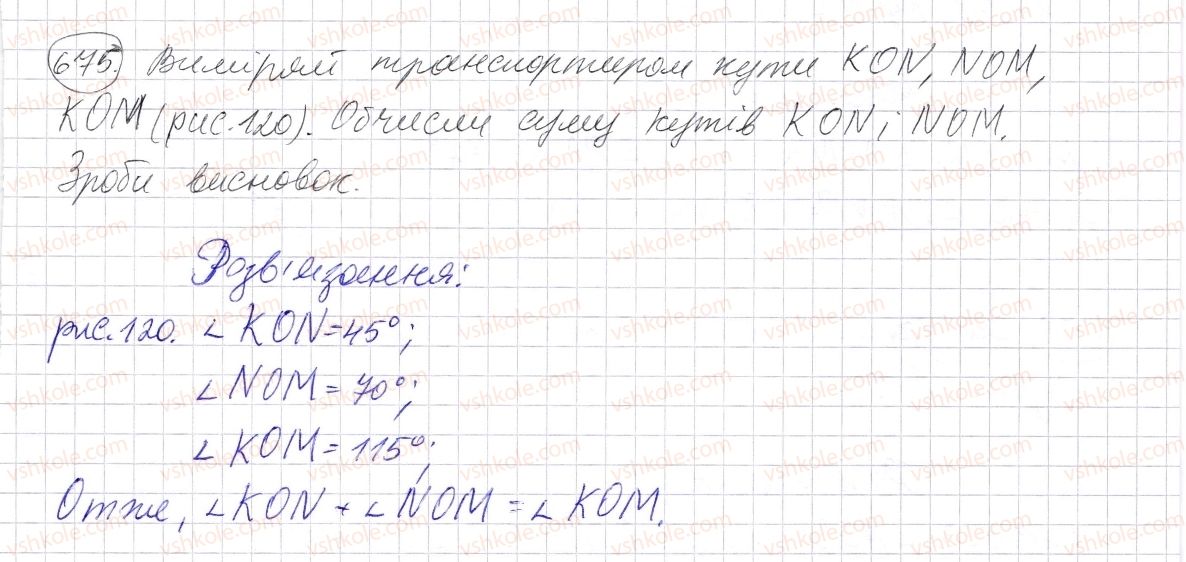 675. Виміряй транспортиром кути KON, NOM,
KOM (рис.120). Обчисли суму кутів KON i NOM.
Зроби висновок.
Розв'язання:
рис.120. ∠ KON = 45°;
∠ NOM = 70°;
∠ KOM = 115°;
Отже, ∠KON + ∠NOM = ∠KOM.